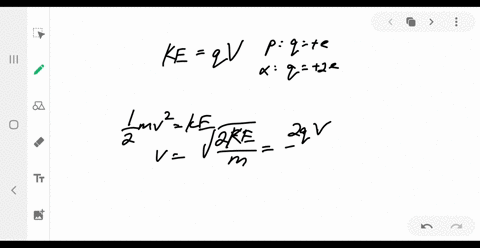 KE = qV
p: q=+e
α: q=+2e
1/2 mv² = KE
v = √(2KE/m) = 2qV/
TT